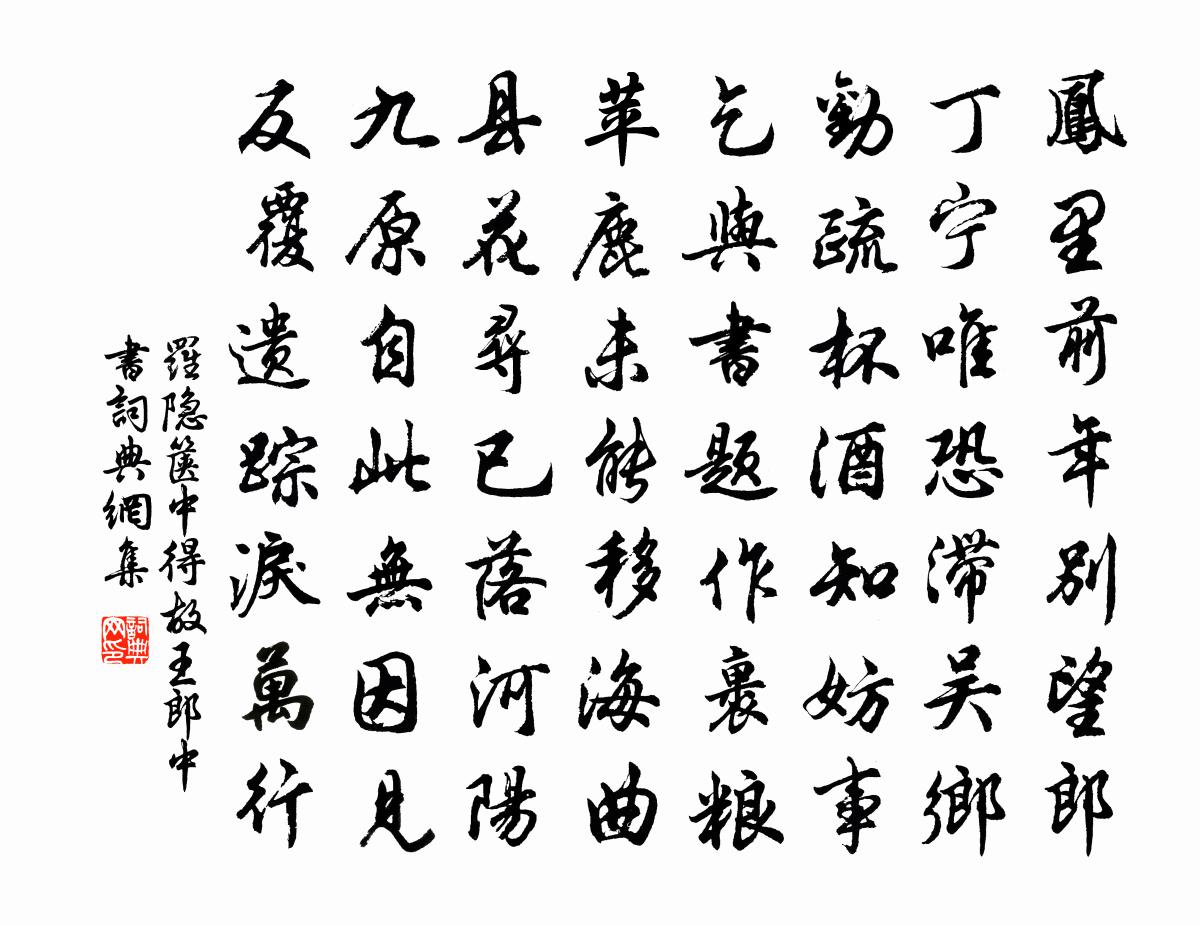 鳳里前年別望郎
丁宁唯恐滯吴鄉
勸疏杯酒知妨事
乞與書題作裹粮
苹鹿未能移海曲
县花尋已落河陽
九原自此無因見
反覆遗踪淚萬行
羅隐箧中得故王郎中
書詞典網集
詞典
网印